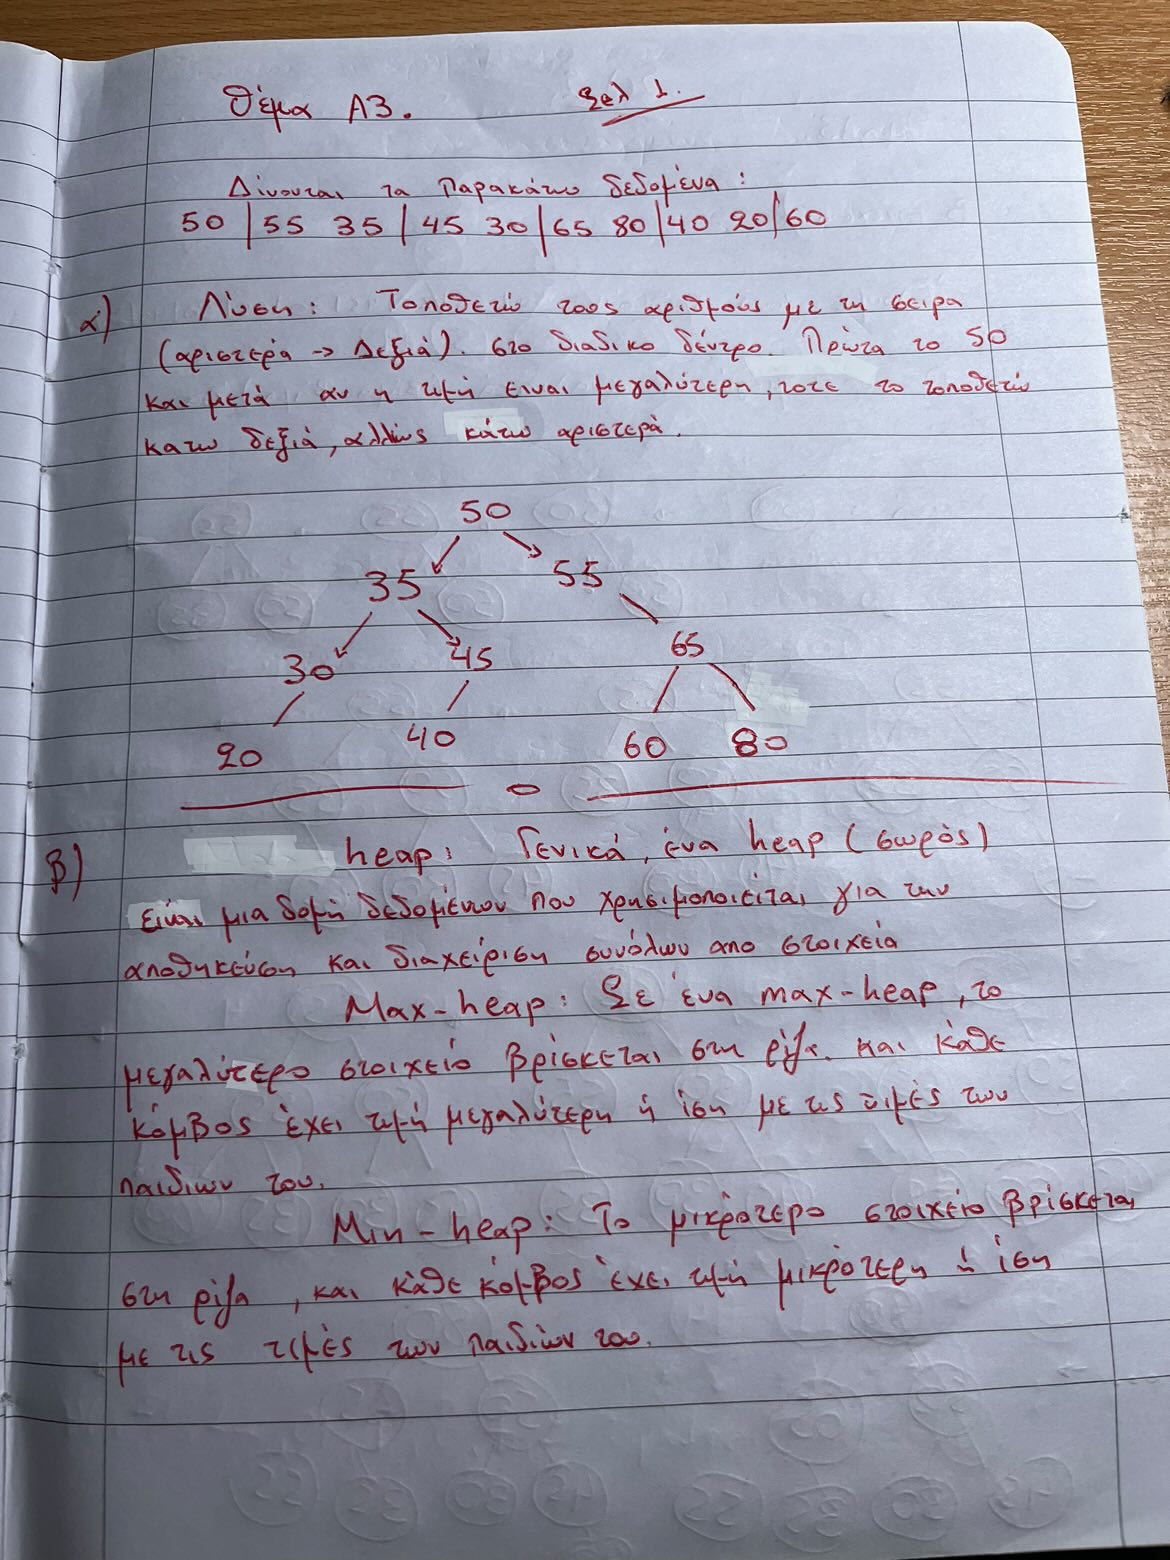 Θέμα Α3. Σελ 1.
Δίνονται τα παρακάτω δεδομένα :
50 | 55 35 | 45 30 | 65 80 | 40 20 | 60
α) Λύση : Τοποθετώ τους αριθμούς με τη σειρα
(αριστερά → Δεξιά). στο διαδικο δέντρο. Πρώτα το 50
και μετά αν η τιμή ειναι μεγαλύτερη, τοτε το τοποθετώ
κατω δεξιά, αλλιώς κάτω αριστερά.
50
35 55
30 45 65
20 40 60 80
β) heap : Γενικά, ένα heap (σωρός)
είναι μια δομή δεδομένων που χρησιμοποιείται για την
αποθηκεύση και διαχείριση συνόλων απο στοιχεία
Max-heap : Σε ένα max-heap, το
μεγαλύτερο στοιχείο βρίσκεται στη ρίζα. και κάθε
κόμβος έχει τιμή μεγαλύτερη ή ίση με τις τιμές των
παιδιων του.
Min-heap : Το μικρότερο στοιχείο βρίσκεται
στη ρίζα, και κάθε κόμβος έχει τιμή μικρότερη ή ίση
με τις τιμές των παιδιών του.